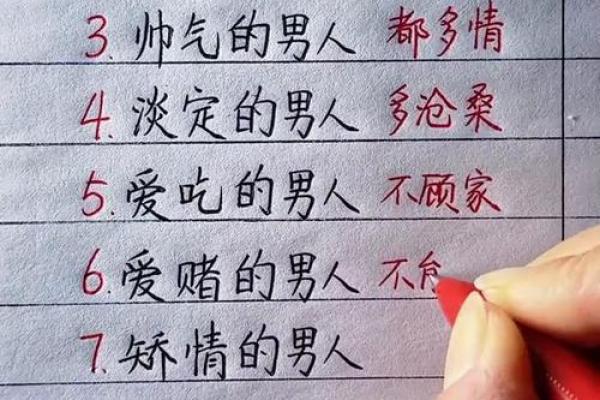 3. 帅气的男人 都多情
4. 淡定的男人 多沧桑
5. 爱吃的男人 不顾家
6. 爱赌的男人 不
7. 矫情的男人